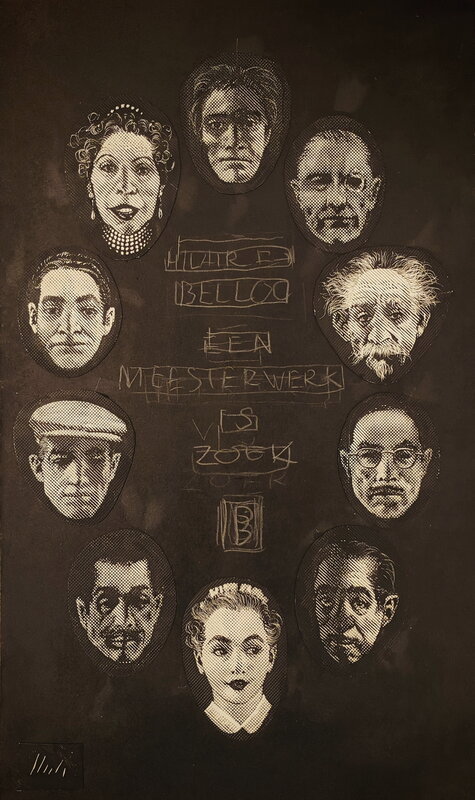 HILAIRE
BELLOC
EEN
MEESTERWERK
IS
ZOEK
ZOEK
B
B